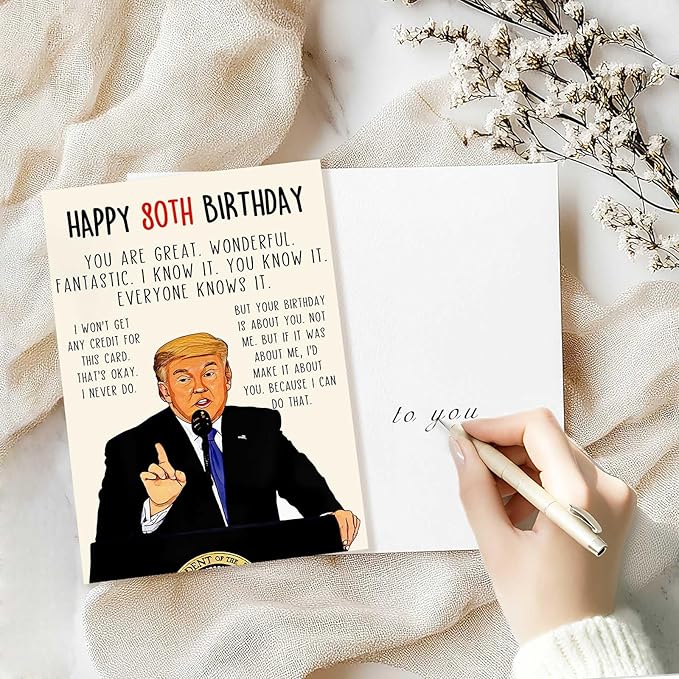 HAPPY 80TH BIRTHDAY
YOU ARE GREAT. WONDERFUL.
FANTASTIC. I KNOW IT. YOU KNOW IT.
EVERYONE KNOWS IT.
I WON'T GET
ANY CREDIT FOR
THIS CARD.
THAT'S OKAY.
I NEVER DO.
BUT YOUR BIRTHDAY
IS ABOUT YOU. NOT
ME. BUT IF IT WAS
ABOUT ME, I'D
MAKE IT ABOUT
YOU. BECAUSE I CAN
DO THAT.
DENT OF THE
to you